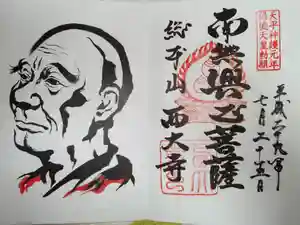 平成二九年
七月二十五日
天平神護元年
天皇勅願
南無興正菩薩
総本山 西大寺